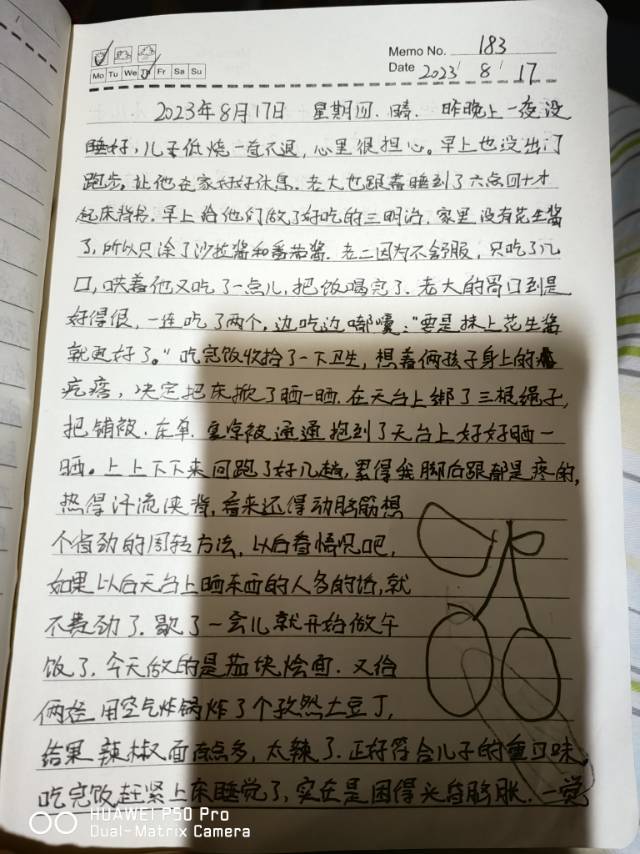 Memo No. 183
Mo Tu We Th Fr Sa Su
Date 2023 / 8 / 17
2023年8月17日 星期四. 晴. 昨晚上一夜没
睡好，儿子低烧一直不退，心里很担心。早上也没出门
跑步。让他在家好好休息。老大也跟着睡到了六点四十才
起床背书。早上给他们做了好吃的三明治，家里没有花生酱
了，所以只涂了沙拉酱和番茄酱．老二因为不舒服，只吃了几
口，哄着他又吃了一点儿，把饭喝完了．老大的胃口到是
好得很，一连吃了两个，边吃边嘟囔："要是抹上花生酱
就更好了。"吃完饭收拾了一下卫生，想着俩孩子身上的
疙瘩，决定把床掀了晒一晒．在天台上绑了三根绳子，
把铺被．床单．空学被通通抱到了天台上好好晒一
晒。上上下下来回跑了好几趟，累得我脚后跟都是疼的，
热得汗流浃背，看来还得动脑筋想
个省劲的周转方法，以后看情况吧，
如果以后天台上晒东西的人多的话，就
不费劲了．歇了一会儿就开始做午
饭了．今天做的是茄块烩面．又给
俩娃用空气炸锅炸了个孜然土豆丁，
结果辣椒面有点多，太辣了．正好符合儿子的重口味。
吃完饭赶紧上床睡觉了，实在是困得头昏脑胀．一觉
HUAWEI P50 Pro
Dual-Matrix Camera